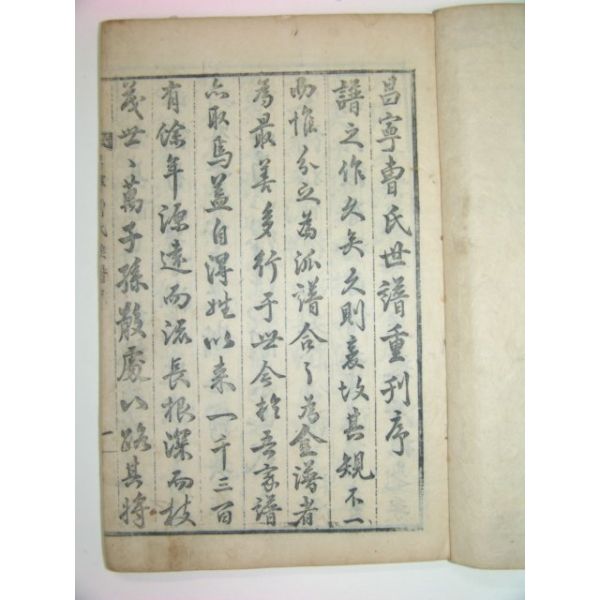 昌寧曺氏世譜重刊序
譜之作久矣久則衰故其規不一
而惟分之爲派譜合之爲全譜者
爲最善多行于世今於吾家譜
亦取焉盖自得姓以来一千三百
有餘年源遠而流長根深而枝
茂世〻萬子孫散處八路其將